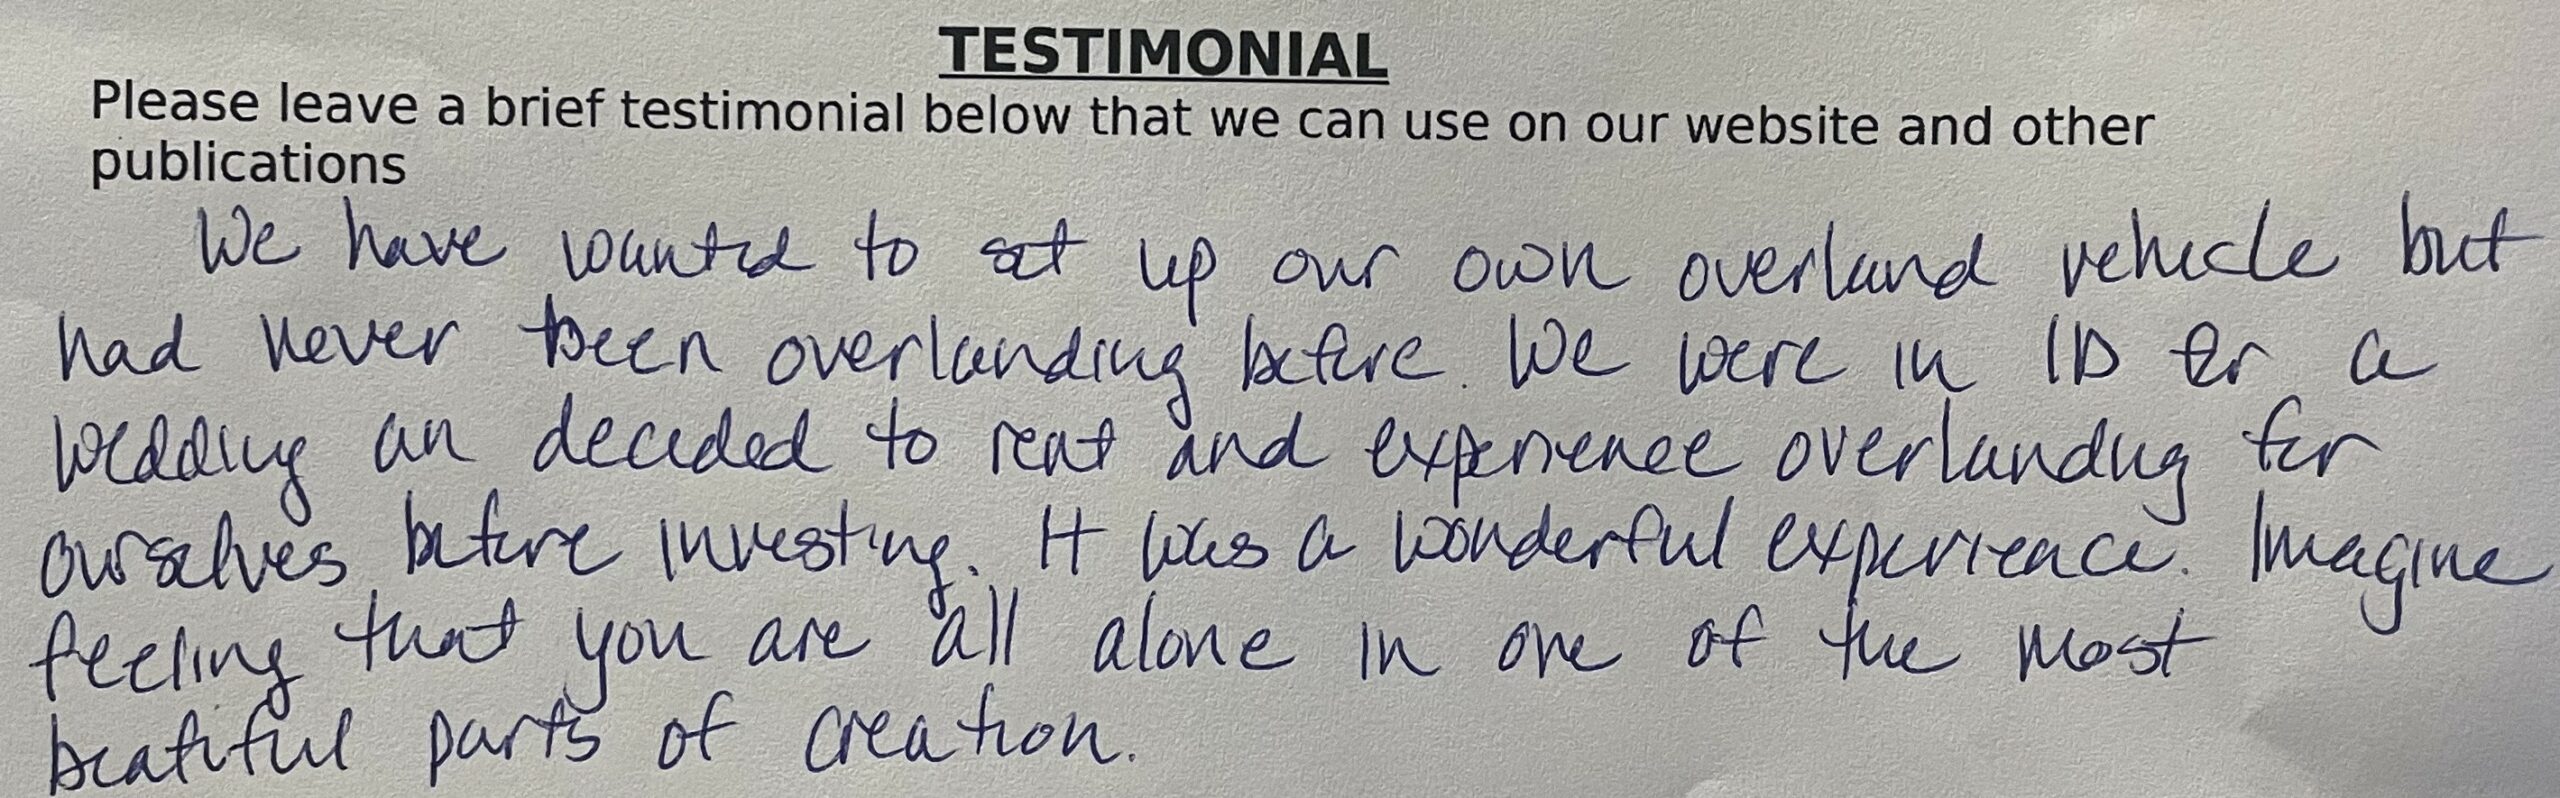 TESTIMONIAL
Please leave a brief testimonial below that we can use on our website and other
publications
We have wanted to set up our own overland vehicle but
had never been overlanding before. We were in ID for a
wedding an decided to rent and experience overlanding for
ourselves before investing. It was a wonderful experience. Imagine
feeling that you are all alone in one of the most
beatiful parts of creation.